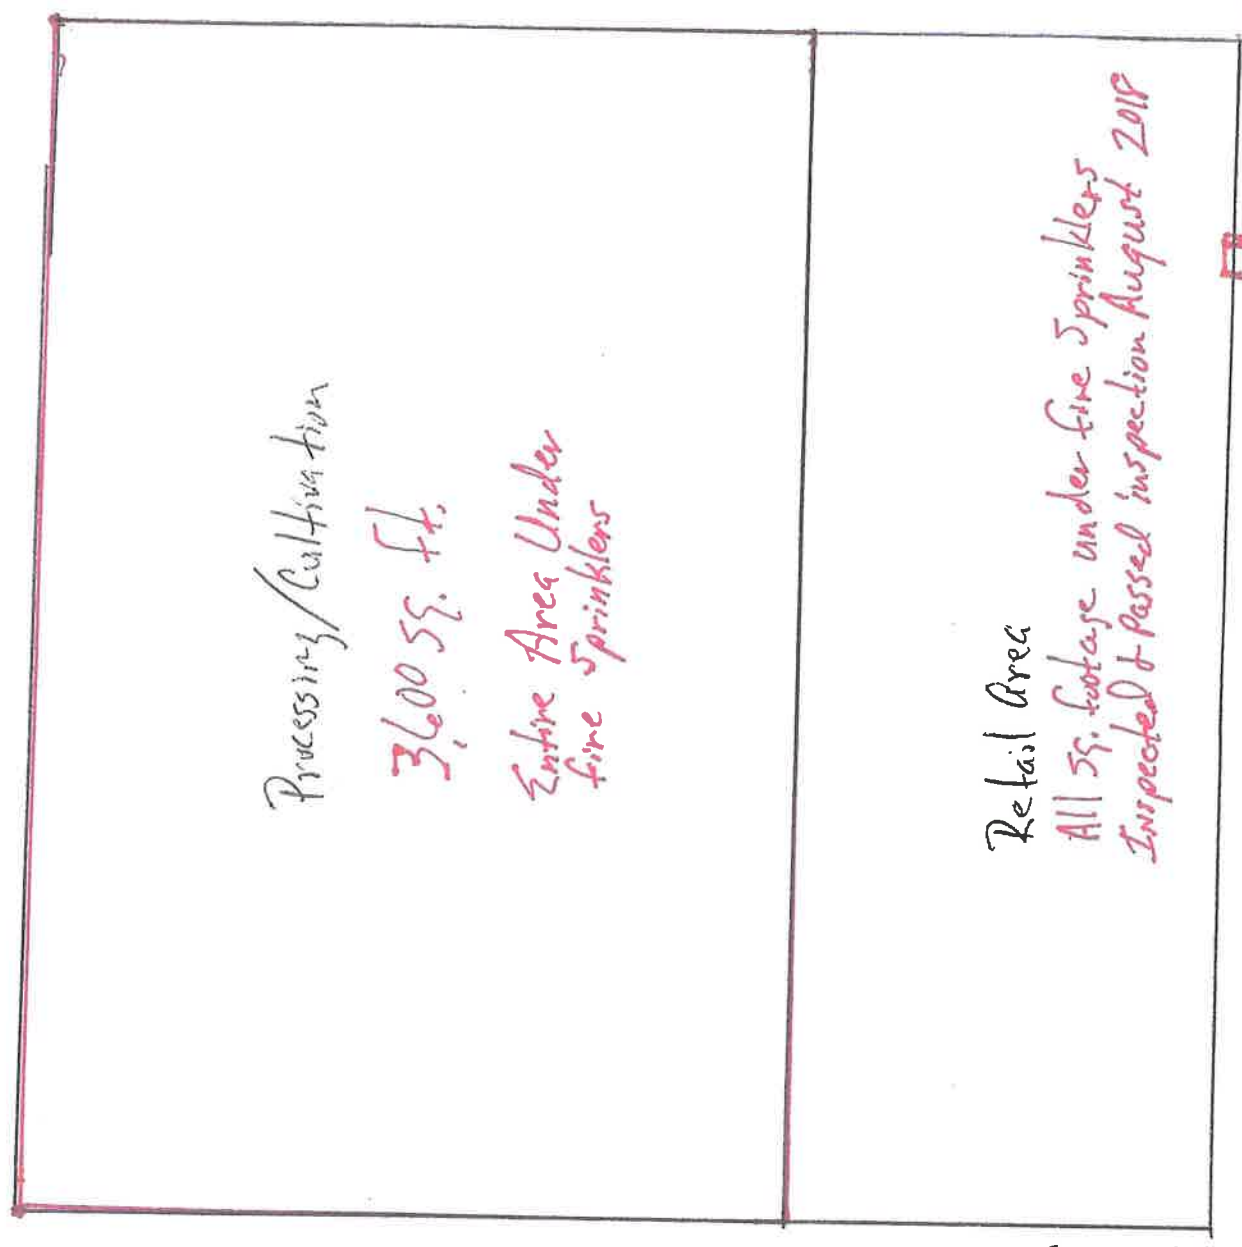 Processing/Cultivation
3,600 sq. ft.
Entire Area Under
fire sprinklers
Retail Area
All sq. footage under fire sprinklers
Inspected & Passed inspection August 2018